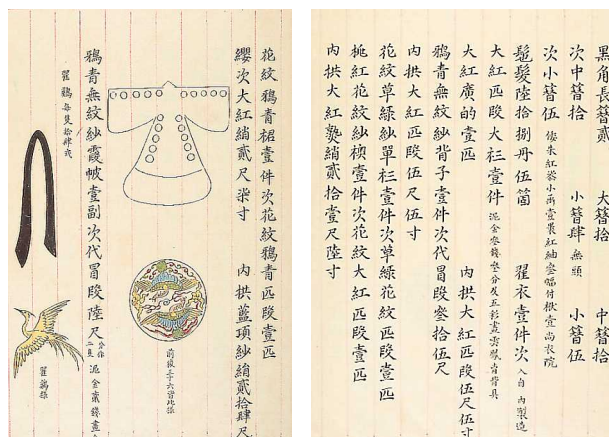 黑角長簪貳 大簪拾 中簪拾
次中簪拾 小簪肆 無頭 小簪伍
次小簪伍 倭朱紅漆小函壹裹紅紬參幅付袱壹 尚衣院
髢髮陸拾捌丹伍箇 翟衣壹件次 入自內製造
大紅匹段大衫壹件 泥金參錢參分及五彩畫雲鳳肯背具
大紅廣的壹匹 內拱大紅匹段伍尺伍寸
鴉青無紋紗背子壹件次代冒段參拾伍尺
內拱大紅匹段伍尺伍寸
花紋草綠紗單衫壹件次草綠花紋匹段壹匹
桃紅花紋紗襖壹件次花紋大紅匹段壹匹
內拱大紅熟綃貳拾壹尺陸寸
花紋鴉青裙壹件次花紋鴉青匹段壹匹
纓次大紅綃貳尺柒寸 內拱藍項紗綃貳拾肆尺
前後三十六皆此樣
鴉青無紋紗霞帔壹副次代冒段陸尺 分作二頁 泥金柒錢畫
翟鷄每隻拾肆
翟鷄樣